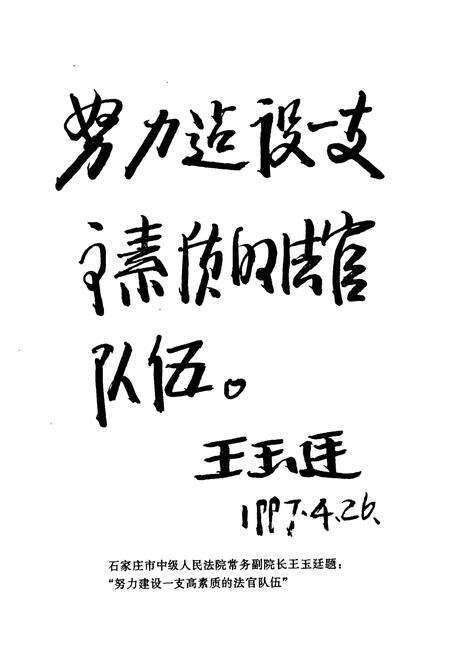 努力造设一支
高素质的法官
队伍。
王玉廷
1997.4.26.
石家庄市中级人民法院常务副院长王玉廷题：
“努力建设一支高素质的法官队伍”